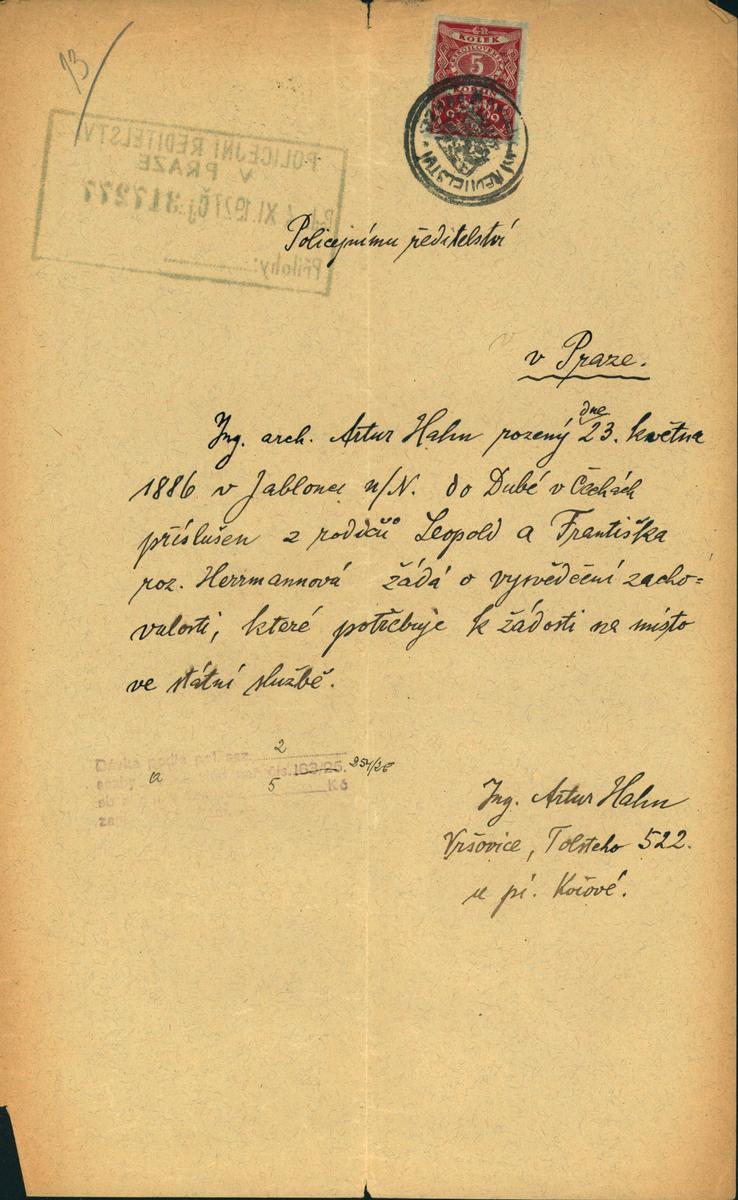 13
KOLEK
5
KORUN
POLICEJNÍ ŘEDITELSTVÍ
V PRAZE
XI. 1927 Čj. 317277
Přílohy:
Policejnímu ředitelství
v Praze.
dne
Ing. arch. Artur Hahn rozený 23. května
1886 v Jablonci n/N. do Dubé v Čechách
příslušen z rodičů Leopold a Františka
roz. Herrmannová žádá o vysvědčení zacho-
valosti, které potřebuje k žádosti na místo
ve státní službě.
Dávka podle pol. saz. 2
163/25. 254/26
5 Kč
Ing. Artur Hahn
Vršovice, Tolsteho 522.
u pí.